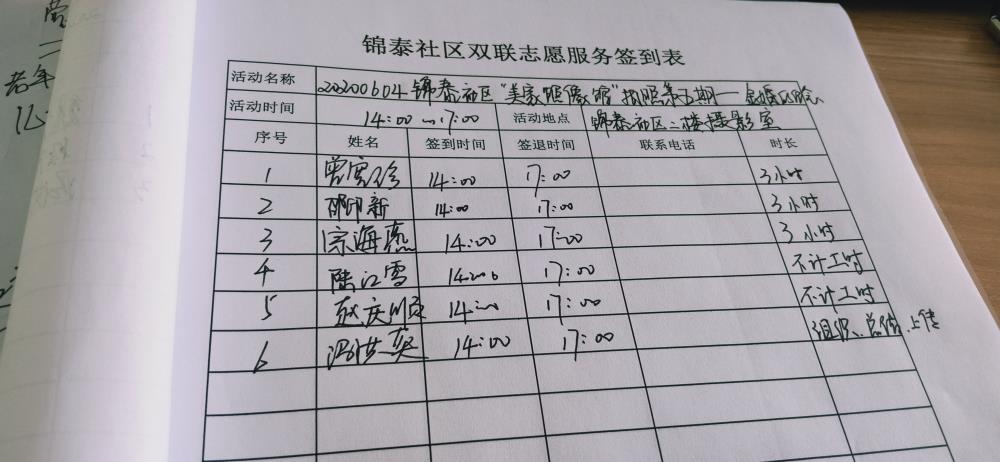 锦泰社区双联志愿服务签到表
活动名称 20200604锦泰社区"美家照像馆"拍照第五期—金婚
活动时间 14:00~17:00 活动地点 锦泰社区二楼摄影室
序号 姓名 签到时间 签退时间 联系电话 时长
1 14:00 17:00 3小时
2 邵印新 14:00 17:00 3小时
3 宗海燕 14:00 17:00 3小时
4 陆江雪 14:00 17:00 不计工时
5 赵庆顺 14:00 17:00 不计工时
6 14:00 17:00 组织、总结、上传
老年